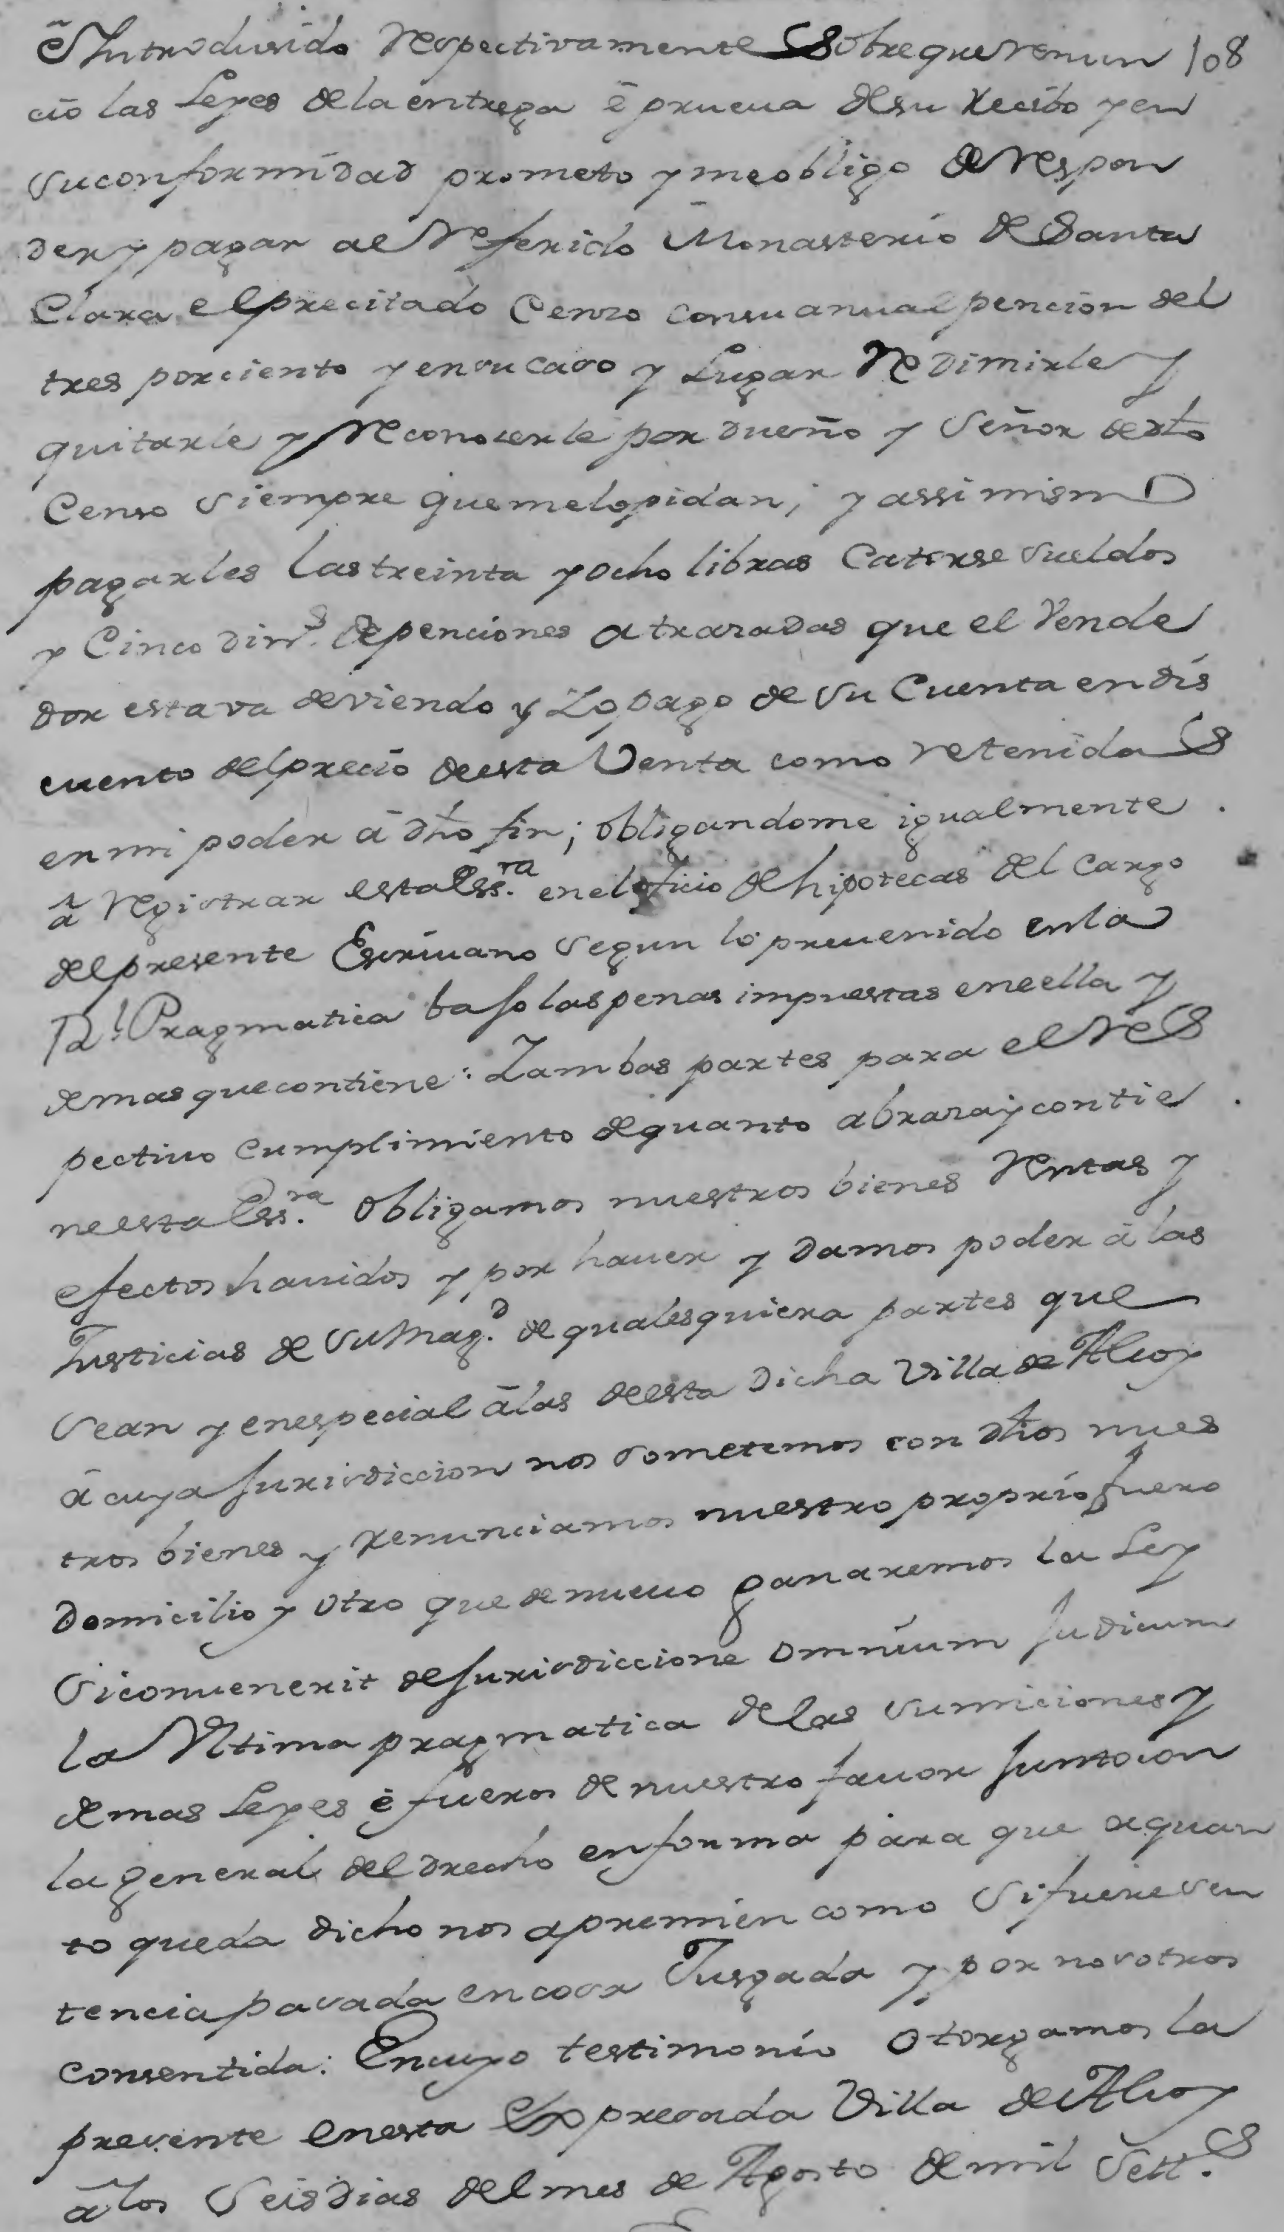 ê Introducido respectivamente Sobre que renun 108
cio las Leyes de la entrega ê prueua de su recibo y en
su conformidad prometo y me obligo de respon
der y pagar al referido Monasterio de Santa
Clara el precitado Censo con su anual pencion del
tres por ciento y en su caso y Lugar redimirle y
quitarle y reconoserle por dueño y Señor de dho
Censo siempre que me lo pidan; y assi mismo
pagarles las treinta y ocho libras Catorse sueldos
y Cinco din.s de penciones atrazadas que el Vende
dor estava deviendo y Lo pago de su Cuenta en dis
cuento del precio de esta Venta como retenidas
en mi poder â dho fin; obligandome igualmente
â registrar esta Ess.ra en el oficio de hipotecas del cargo
del presente Escriuano segun lo preuenido en la
R.l Pragmatica baso las penas impuestas en ella y
demas que contiene: Y ambas partes para el res
pectiuo cumplimiento de quanto abraza y contie
ne esta Ess.ra obligamos nuestros bienes rentas y
efectos hauidos y por hauer y damos poder â las
Justicias de su Mag.d de qualesquiera partes que
sean y en especial â las de esta dicha Villa de Alcoy
â cuya Jurisdiccion nos sometemos con dhos nues
tros bienes y renunciamos nuestro proprio fuero
Domicilio y otro que de nueuo ganaremos la Ley
si conuenerit de Jurisdiccione omnium Judicum
la Ultima pragmatica de las sumiciones y
demas Leyes ê fueros de nuestro fauor Junto con
la general del drecho en forma para que a quan
to queda dicho nos apremien como si fuere sen
tencia pasada en cosa Jusgada y por nosotros
consentida: En cuyo testimonio otorgamos la
presente en esta expresada Villa de Alcoy
â los seis dias del mes de Agosto de mil Sett.s